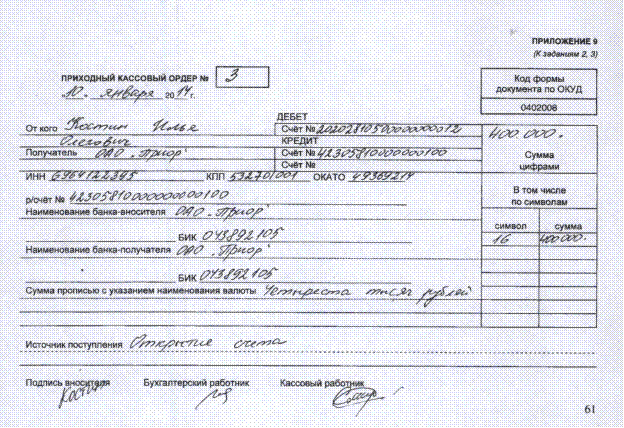 ПРИЛОЖЕНИЕ 9
(К заданиям 2, 3)
ПРИХОДНЫЙ КАССОВЫЙ ОРДЕР № 3
10. января 2014 г.
Код формы
документа по ОКУД
0402008
ДЕБЕТ
От кого Костин Илья
Счёт № 20202810500000000012
400 000.
Олегович
КРЕДИТ
Получатель ОАО "Приор"
Счёт № 42305810000000100
Сумма
цифрами
Счёт №
ИНН 6964122395 КПП 532701001 ОКАТО 49369214
В том числе
по символам
р/счёт № 42305810000000000100
Наименование банка-вносителя ОАО "Приор"
символ сумма
БИК 043892105
16 400000.
Наименование банка-получателя ОАО "Приор"
БИК 043892105
Сумма прописью с указанием наименования валюты Четыреста тысяч рублей
Источник поступления Открытие счета
Подпись вносителя Бухгалтерский работник Кассовый работник
Костин
61